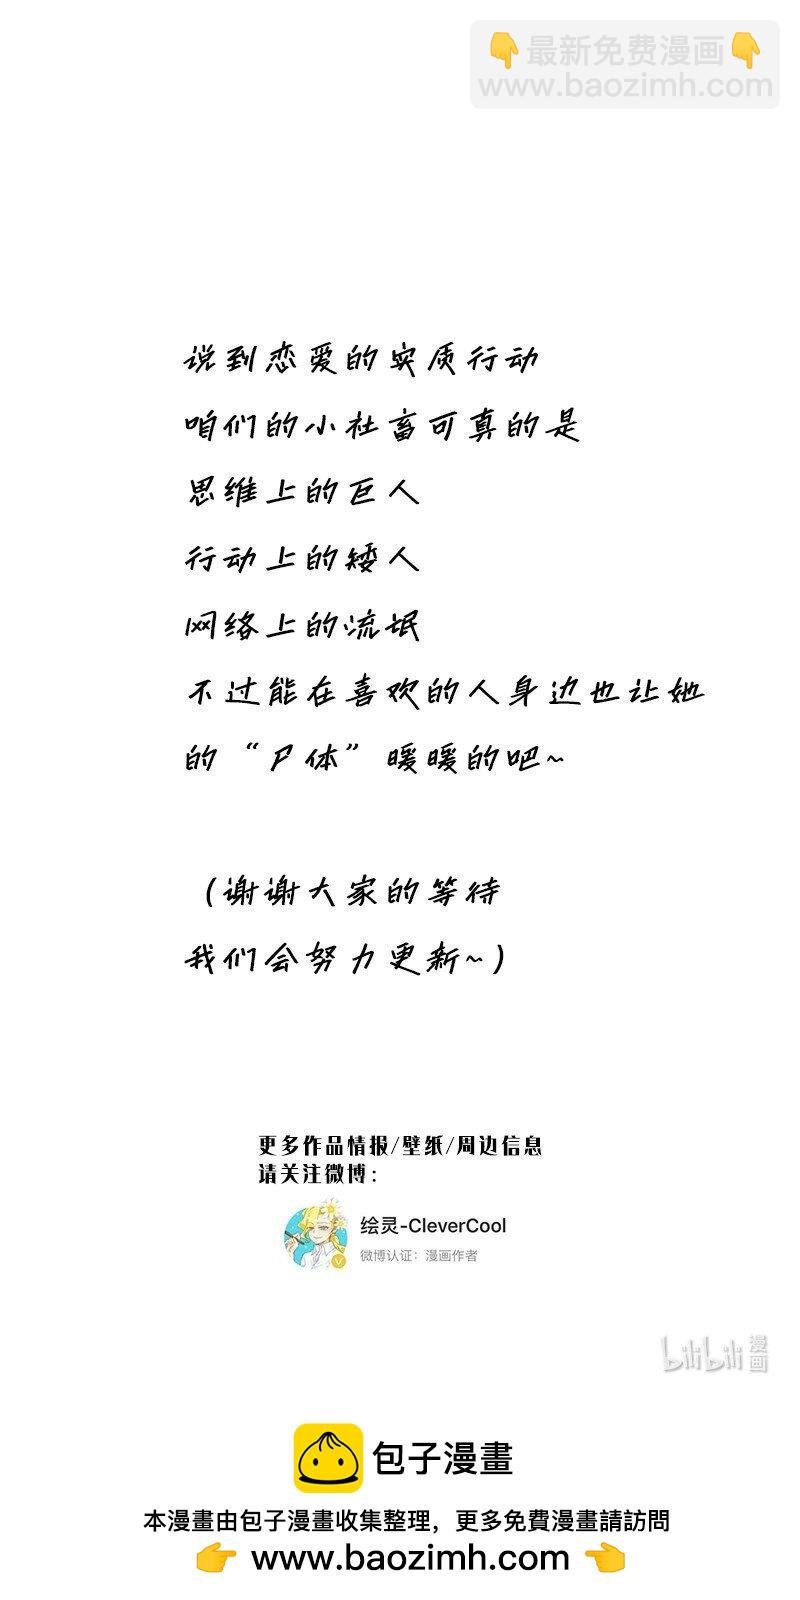 👇最新免费漫画👇
www.baozimh.com
说到恋爱的实质行动
咱们的小社畜可真的是
思维上的巨人
行动上的矮人
网络上的流氓
不过能在喜欢的人身边也让她
的“尸体”暖暖的吧~
(谢谢大家的等待
我们会努力更新~)
更多作品情报/壁纸/周边信息
请关注微博:
绘灵-CleverCool
微博认证：漫画作者
V
bilibili漫画
包子漫畫
本漫畫由包子漫畫收集整理，更多免費漫畫請訪問
👉 www.baozimh.com 👈